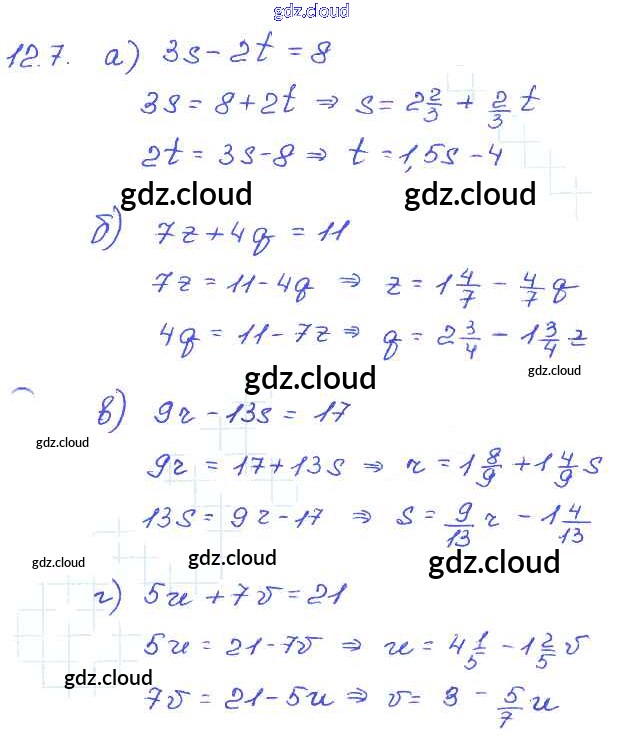 gdz.cloud
12.7. а) 3s - 2t = 8
3s = 8 + 2t ⇒ s = 2 2/3 + 2/3 t
2t = 3s - 8 ⇒ t = 1,5s - 4
gdz.cloud gdz.cloud
б) 7z + 4q = 11
7z = 11 - 4q ⇒ z = 1 4/7 - 4/7 q
4q = 11 - 7z ⇒ q = 2 3/4 - 1 3/4 z
gdz.cloud
gdz.cloud
в) 9r - 13s = 17
gdz.cloud
9r = 17 + 13s ⇒ r = 1 8/9 + 1 4/9 s
13s = 9r - 17 ⇒ s = 9/13 r - 1 4/13
gdz.cloud gdz.cloud gdz.cloud
г) 5u + 7v = 21
5u = 21 - 7v ⇒ u = 4 1/5 - 1 2/5 v
gdz.cloud
7v = 21 - 5u ⇒ v = 3 - 5/7 u